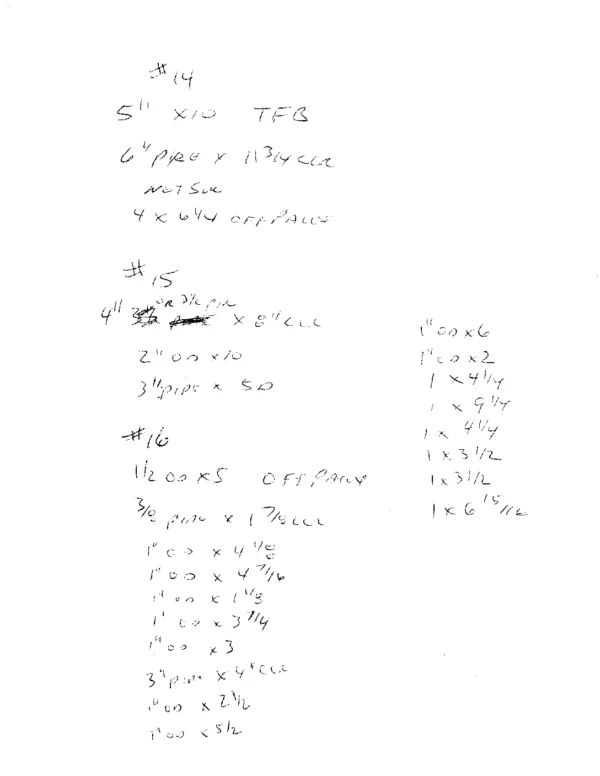 #14
5" x10 TFB
6" pipe x 11 3/4 CLR
NOT SUR
4 x 6 1/4 OFF PALLE
#15
4" OR 3 1/2 pipe x 8" CLR
2" OD x10
3" pipe x 5 D
#16
1 1/2 OD x5 OFF
3/8 pipe x 1 7/8 CLR
1" OD x 4 1/8
1" OD x 4 7/16
1" OD x 1 1/8
1" OD x 3
1" OD x 3
3" pipe x 4" CLR
1" OD x 2 1/2
1" OD x 5 1/2
1" OD x6
1" OD x2
1 x 4 1/4
1 x 9 1/4
1 x 4 1/4
1 x 3 1/2
1 x 3 1/2
1 x 6 15/16